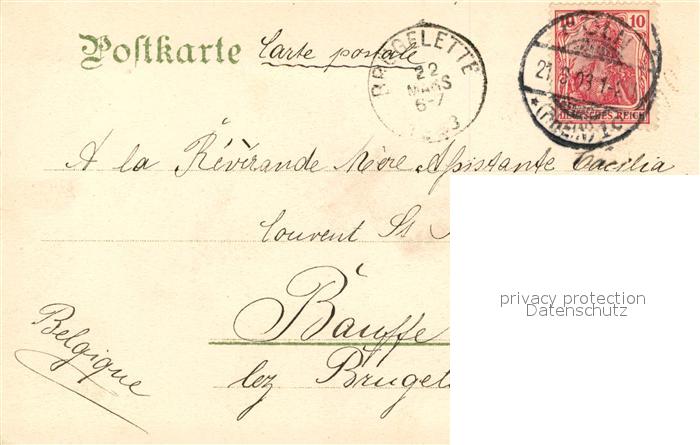 Postkarte Carte postale
BRUGELETTE
22
MARS
6-7
10
10
21. 3. 03. 1-
(RHEIN) 1c
DEUTSCHES REICH
A la Révérande Mère Assistante Cacilia
Couvent Ss
Bauffe
lez Brugel
Belgique
privacy protection
Datenschutz